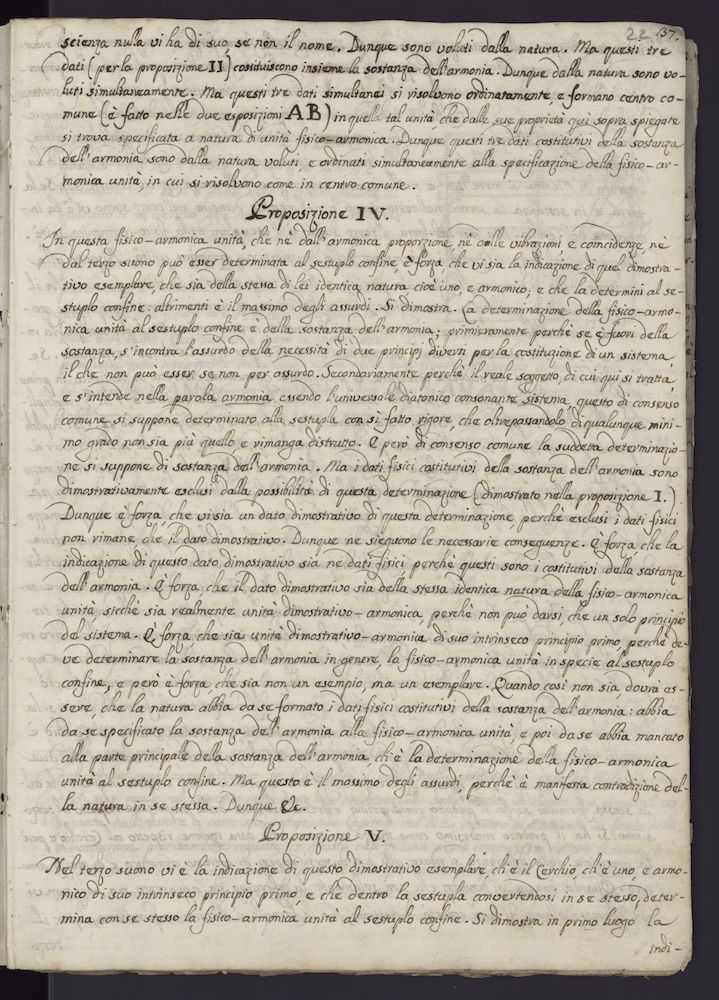 22 37.
scienza nulla vi ha di suo, se non il nome. Dunque sono voluti dalla natura. Ma questi tre
dati (per la proposizione II) costituiscono insieme la sostanza dell'armonia. Dunque dalla natura sono vo-
luti simultaneamente. Ma questi tre dati simultanei si risolvono ordinatamente, e formano centro co-
mune (è fatto nelle due esposizioni AB) in quella tal unità che dalle sue proprietà qui sopra spiegate
si trova specificata a natura di unità fisico-armonica. Dunque questi tre dati costitutivi della sostanza
dell'armonia sono dalla natura voluti, e ordinati simultaneamente alla specificazione della fisico-ar-
monica unità, in cui si risolvono come in centro comune.
Proposizione IV.
In questa fisico-armonica unità, che nè dall'armonica proporzione, nè dalle vibrazioni e coincidenze, nè
dal terzo suono può esser determinata al sestuplo confine è forza, che vi sia la indicazione di quel dimostra-
tivo esemplare, che sia della stessa di lei identica natura cioè uno, e armonico; e che la determini al se-
stuplo confine: altrimenti è il massimo degli assurdi. Si dimostra. La determinazione della fisico-armo-
nica unità al sestuplo confine è della sostanza dell'armonia; primieramente perchè se è fuori della
sostanza, s'incontra l'assurdo della necessità di due principj diversi per la costituzione di un sistema,
il che non può esser se non per assurdo. Secondariamente perchè il reale soggetto, di cui qui si tratta,
e s'intende nella parola armonia essendo l'universale diatonico consonante sistema, questo di consenso
comune si suppone determinato alla sestupla con sì fatto rigore, che oltrepassandolo di qualunque mini-
mo grado non sia più quello e rimanga distrutto. E però di consenso comune la suddetta determinazio-
ne si suppone di sostanza dell'armonia. Ma i dati fisici costitutivi della sostanza dell'armonia sono
dimostrativamente esclusi dalla possibilità di questa determinazione (dimostrato nella proposizione I.)
Dunque è forza, che vi sia un dato dimostrativo di questa determinazione, perchè esclusi i dati fisici
non rimane che il dato dimostrativo. Dunque ne sieguono le necessarie conseguenze. È forza che la
indicazione di questo dato dimostrativo sia ne dati fisici perchè questi sono i costitutivi della sostanza
dell'armonia. È forza, che il dato dimostrativo sia della stessa identica natura della fisico-armonica
unità, sicchè sia realmente unità dimostrativo-armonica, perchè non può darsi che un solo principio
del sistema. È forza, che sia unità dimostrativo-armonia di suo intrinseco principio primo, perchè de-
ve determinare la sostanza dell'armonia in genere, la fisico-armonica unità in specie al sestuplo
confine, e però è forza, che sia non un esempio, ma un esemplare. Quando così non sia, dovrà es-
sere, che la natura abbia da se formato i dati fisici costitutivi della sostanza dell'armonia: abbia
da se specificato la sostanza dell'armonia alla fisico-armonica unità, e poi da se abbia mancato
alla parte principale della sostanza dell'armonia, ch'è la determinazione della fisico-armonica
unità al sestuplo confine. Ma questo è il massimo degli assurdi, perchè è manifesta contradizione del-
la natura in se stessa. Dunque &c.
Proposizione V.
Nel terzo suono vi è la indicazione di questo dimostrativo esemplare, ch'è il Cerchio, ch'è uno, e armo-
nico di suo intrinseco principio primo, e che dentro la sestupla convertendosi in se stesso, deter-
mina con se stesso la fisico-armonica unità al sestuplo confine. Si dimostra in primo luogo la
indi-